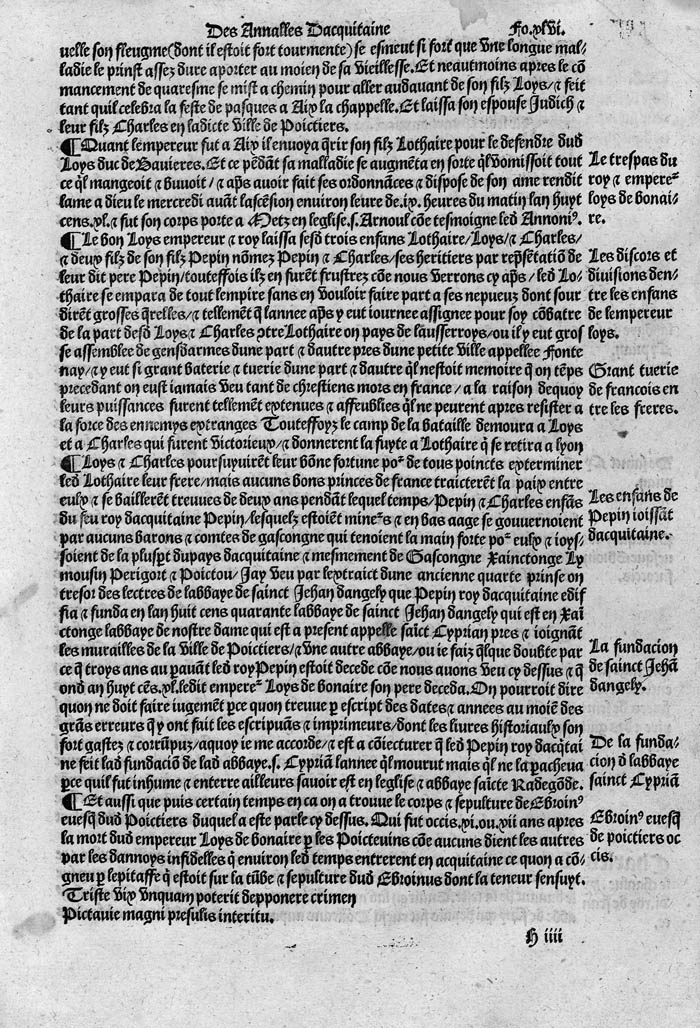 Des Annalles Dacquitaine Fo.xlvi.
uelle son fleugme (dont il estoit fort tourmente) se esmeut si fort que vne longue mal⸗
ladie le prinst assez dure aporter au moien de sa vieillesse. Et neautmoins apres le cõ
mancement de quaresme se mist a chemin pour aller audauant de son filz Loys/ ⁊ feit
tant quil celebra la feste de pasques a Aix la chappelle. Et laissa son espouse Judich ⁊
leur filz Charles en ladicte ville de Poictiers.
¶ Quant lempereur fut a Aix il enuoya q̃rir son filz Lothaire pour le defendre dud
Loys duc de Bauieres. Et ce pẽdãt sa malladie se augmẽta en sorte q̃l vomissoit tout
ce q̃l mangeoit ⁊ buuoit/ ⁊ ap̃s auoir fait ses ordonnãces ⁊ dispose de son ame rendit
lame a dieu le mercredi auãt lascẽsion enuiron leure de .ix. heures du matin lan huyt
cens .xl. ⁊ fut son corps porte a Metz en leglise .s. Arnoul cõe tesmoigne led Annoniꝰ.
Le trespas du
roy ⁊ empere⸗
loys de bonai⸗
re.
¶ Le bon Loys empereur ⁊ roy laissa sesd trois enfans Lothaire/ Loys/ ⁊ Charles/
⁊ deux filz de son filz Pepin nõmez Pepin ⁊ Charles/ ses heritiers par rep̃sẽtatiõ de
leur dit pere Pepin/ touteffois ilz en furẽt frustrez cõe nous verrons cy ap̃s/ led Lo⸗
thaire se empara de tout lempire sans en vouloir faire part a ses nepueuz dont sour
dirẽt grosses q̃relles/ ⁊ tellemẽt q̃ lannee ap̃s y eut iournee assignee pour soy cõbatre
de la part desd Loys ⁊ Charles ꝯtre Lothaire on pays de lausserroys/ ou il y eut gros
se assemblee de gensdarmes dune part ⁊ dautre pres dune petite ville appellee Fonte
nay/ ⁊ y eut si grant baterie ⁊ tuerie dune part ⁊ dautre q̃l nestoit memoire q̃ on tẽps
precedant on eust iamais veu tant de chrestiens mors en france/ a la raison dequoy
leurs puissances furent tellemẽt extenues ⁊ affeublies q̃l ne peurent apres resister a
la force des ennemys extranges Touteffoyz le camp de la bataille demoura a Loys
et a Charles qui furent victorieux/ ⁊ donnerent la fuyte a Lothaire q̃ se retira a lyon
Les discors et
diuisions den⸗
tre les enfans
de lempereur
loys.
Grant tuerie
de francois en
tre les freres.
¶ Loys ⁊ Charles poursuyuirẽt leur bõne fortune po² de tous poincts exterminer
led Lothaire leur frere/ mais aucuns bons princes de france traicterẽt la paix entre
eulx ⁊ se baillerẽt treuues de deux ans pendãt lequel temps/ Pepin ⁊ Charles enfãs
du feu roy dacquitaine Pepin/ lesquelz estoiẽt mine²s ⁊ en bas aage se gouuernoient
par aucuns barons ⁊ comtes de gascongne qui tenoient la main forte po² eulx ⁊ ioys⸗
soient de la plusp̃t dupays dacquitaine ⁊ mesmement de Gascongne Xainctonge Ly
mousin Perigort ⁊ Poictou/ Jay veu par lextraict dune ancienne quarte prinse on
tresor des lectres de labbaye de sainct Jehan dangely que Pepin roy dacquitaine edif
fia ⁊ funda en lan huit cens quarante labbaye de sainct Jehan dangely qui est en Xaĩ
ctonge labbaye de nostre dame qui est a present appelle saĩct Cyprian pres ⁊ ioignãt
les murailles de la ville de Poictiers/ ⁊ vne autre abbaye/ ou ie faiz q̃lque doubte par
ce q̃ troys ans au p̃auãt led roy Pepin estoit decede cõe nous auons veu cy dessus ⁊ q̃
ond an huyt cẽs .xl. ledit empere² Loys de bonaire son pere deceda. On pourroit dire
quon ne doit faire iugemẽt p̃ce quon treuue p̃ escript des dates ⁊ annees au moiẽ des
grãs erreurs q̃ y ont fait les escripuãs ⁊ imprimeurs/ dont les liures historiaulx son
fort gastez ⁊ corrũpuz/ aquoy ie me accorde/ ⁊ est a cõiecturer q̃ led Pepin roy dacq̃tai
ne feit lad fundaciõ de lad abbaye .s. Cypriã lannee q̃l mourut mais q̃l ne la p̃acheua
p̃ce quil fut inhume ⁊ enterre ailleurs sauoir est en leglise ⁊ abbaye saĩcte Radegõde.
Les enfans de
Pepin ioissãt
dacquitaine.
La fundacion
de sainct Jehã
dangely.
De la funda⸗
cion d̃ labbaye
sainct Cypriã
¶ Et aussi que puis certain temps en ca on a trouue le corps ⁊ sepulture de Ebroinꝰ
euesq̃ dud Poictiers duquel a este parle cy dessus. Qui fut occis .xi. ou .xii ans apres
la mort dud empereur Loys de bonaire p̃ les Poicteuins cõe aucuns dient les autres
par les dannoys infidelles q̃ enuiron led temps entrerent en acquitaine ce quon a cõ⸗
gneu p̃ lepitaffe q̃ estoit sur la tũbe ⁊ sepulture dud Ebroinus dont la teneur sensuyt.
Ebroinꝰ euesq̃
de poictiers oc
cis.
Triste vix vnquam poterit depponere crimen
Pictauie magni presulis interitu.
H iiii